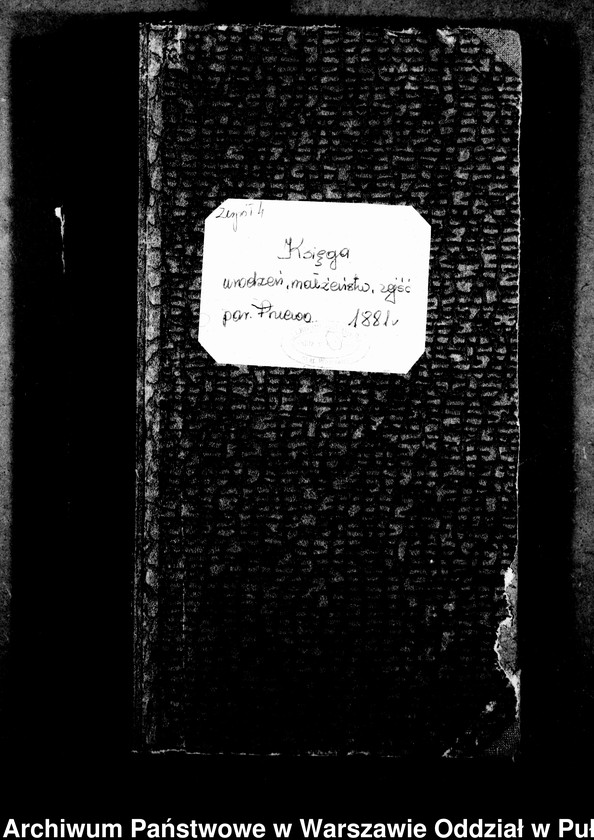 Zeszyt 4
Księga
urodzeń, małżeństw, zejść
par. Pniewo 1881r
Archiwum Państwowe w Warszawie Oddział w Puł